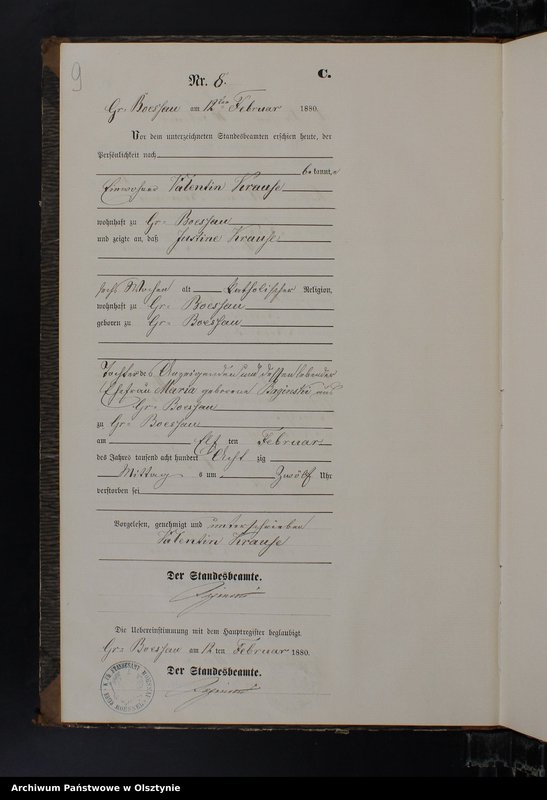 9
C.
Nr. 8.
Gr. Boessau am 12ten Februar 1880.
Vor dem unterzeichneten Standesbeamten erschien heute, der
Persönlichkeit nach
bekannt,
Einwohner Valentin Krause
wohnhaft zu Gr. Boessau
und zeigte an, daß Justine Krause
sechs Wochen alt katholischer Religion,
wohnhaft zu Gr. Boessau
geboren zu Gr. Boessau
Tochter des Anzeigenden und dessen lebender
Ehefrau Maria geborene aus
Gr. Boessau
zu Gr. Boessau
am elf ten Februar
des Jahres tausend acht hundert Acht zig
Mittags um Zwölf Uhr
verstorben sei
Vorgelesen, genehmigt und unterschrieben
Valentin Krause
Der Standesbeamte.
Die Uebereinstimmung mit dem Hauptregister beglaubigt.
Gr. Boessau am 12 ten Februar 1880.
Der Standesbeamte.
Archiwum Państwowe w Olsztynie